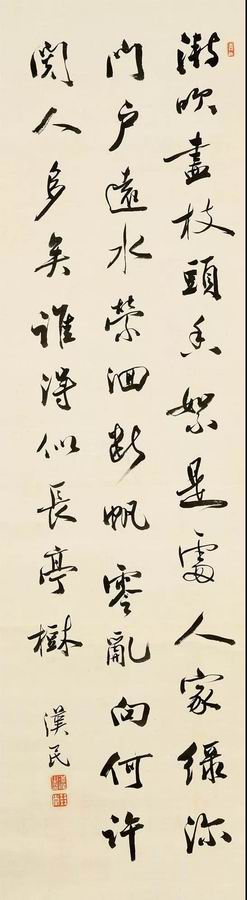 漸吹盡枝頭香絮是處人家綠深
門戶遠水縈洄帆零亂向何許
閱人多矣誰得似長亭樹
漢民